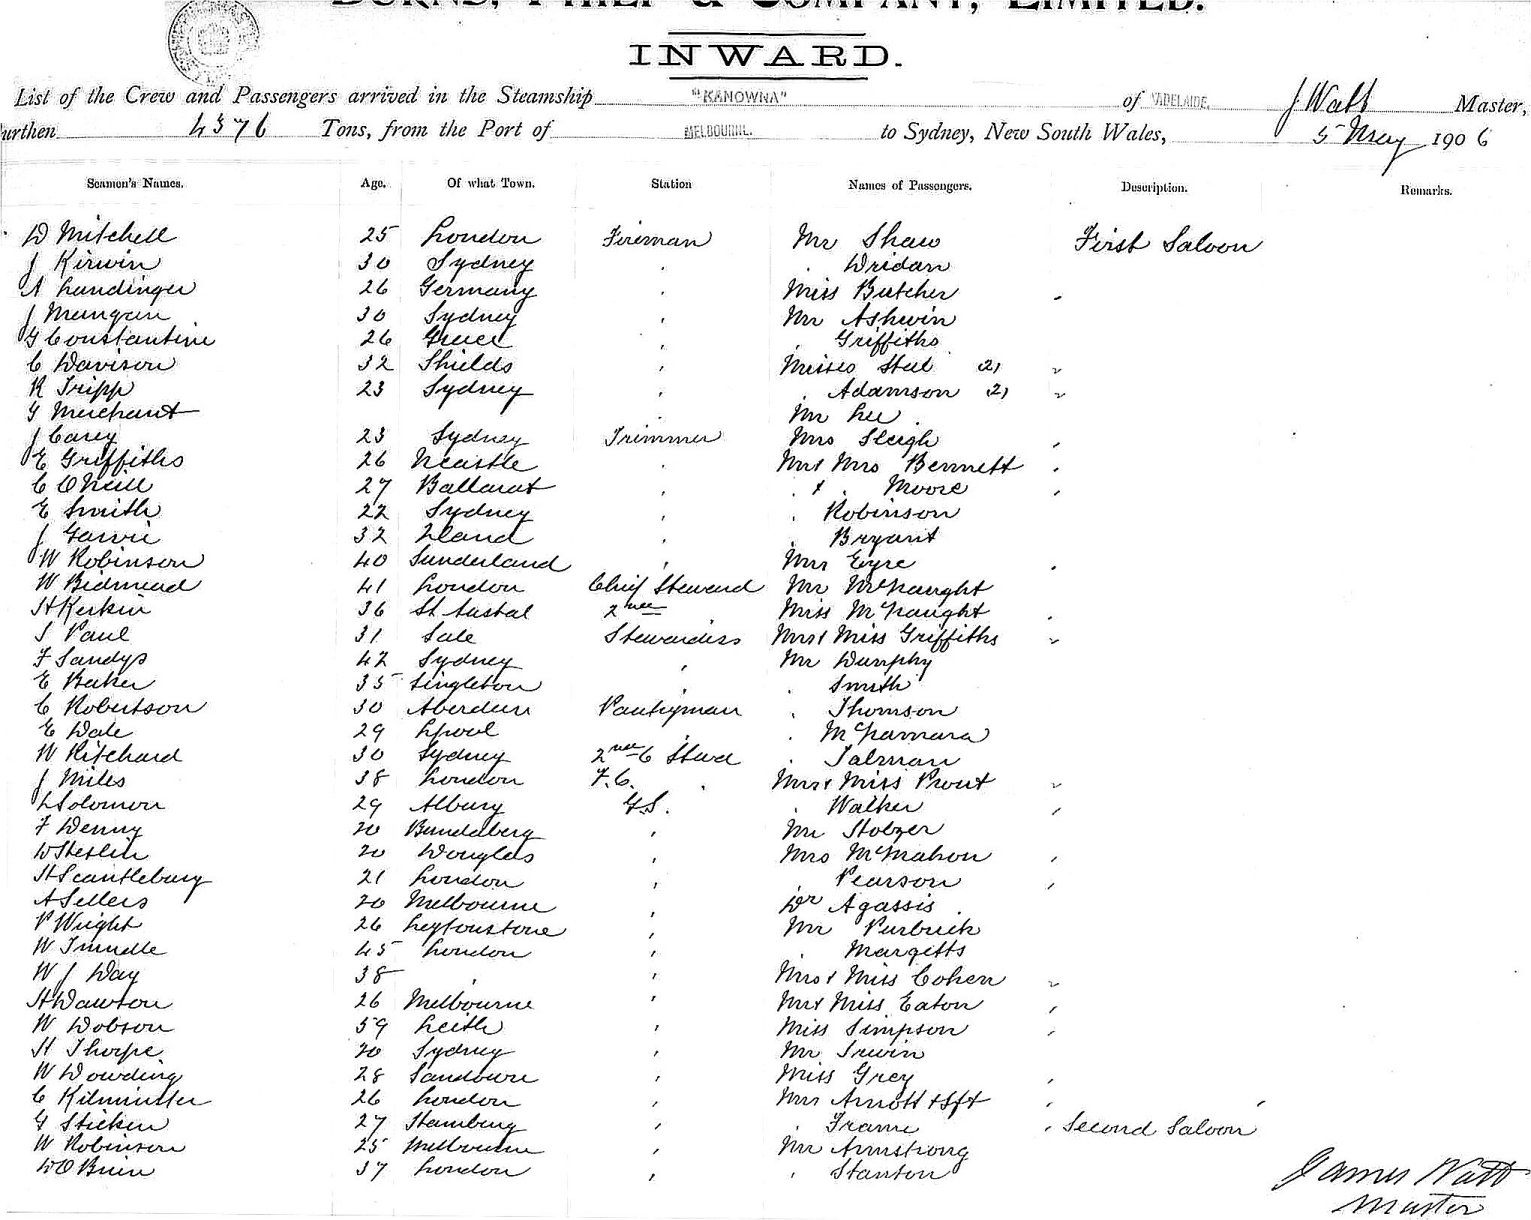 BURNS, PHILP & COMPANY, LIMITED.
INWARD.
List of the Crew and Passengers arrived in the Steamship "KANOWNA" of ADELAIDE, J Watt Master,
urthen 4376 Tons, from the Port of MELBOURNE. to Sydney, New South Wales, 5 May 1906
Seamen's Names. Age. Of what Town. Station Names of Passengers. Description. Remarks.
D Mitchell 25 London Fireman Mr Shaw First Saloon
J Kirwin 30 Sydney " " Dridan
A Landinger 26 Germany " Miss Butcher "
J Mungan 30 Sydney " Mr Ashwin
G Constantine 26 Greece " " Griffiths
C Davison 32 Shields " Misses Steel 2) "
R Tripp 23 Sydney " " Adamson 2) "
G Merchant " Mr Lee
J Carey 23 Sydney Trimmer Mrs Sleigh "
E Griffiths 26 Ncastle " Mr & Mrs Bennett "
C O'Neill 27 Ballarat " " & " Moore "
E Smith 22 Sydney " " Robinson
J Garvie 32 Zland " " Bryant
W Robinson 40 Sunderland " Mrs Eyre "
W Bidmead 41 London Chief Steward Mr McNaught
H Kerkin 36 St Austal 2nd Miss McNaught "
S Paul 31 Sale Stewardess Mrs & Miss Griffiths "
F Sandys 42 Sydney " Mr Dunphy
E Baker 35 Singleton " " Smith
C Robertson 30 Aberdeen Pantryman " Thomson
E Dale 29 Lpool " McNamara
W Pritchard 30 Sydney 2nd C Stwd " Talman
J Miles 38 London F.C. " Mrs & Miss Prout "
L Solomon 29 Albury G.S. " Walker "
F Denny 20 Bundaberg " Mr Stobzer
D Steslin 20 Douglas " Mrs McMahon "
H Scantlebury 21 London " " Pearson "
A Sellers 20 Melbourne " Dr Agassis
P Wright 26 Leytonstone " Mr Purbrick
W Trundle 45 London " " Margetts
W J Day 38 " " Mrs & Miss Cohen "
H Dawson 26 Melbourne " Mr & Miss Eaton "
W Dobson 59 Leith " Miss Simpson "
H Thorpe 20 Sydney " Mr Irwin
W Dowding 28 Sandown " Miss Grey "
C Kilminster 26 London " Mrs Arnott & Sft " "
G Sticken 27 Hamburg " " Frame " Second Saloon
W Robinson 25 Melbourne " Mr Armstrong
D O'Brien 37 London " " Stanton
James Watt
Master